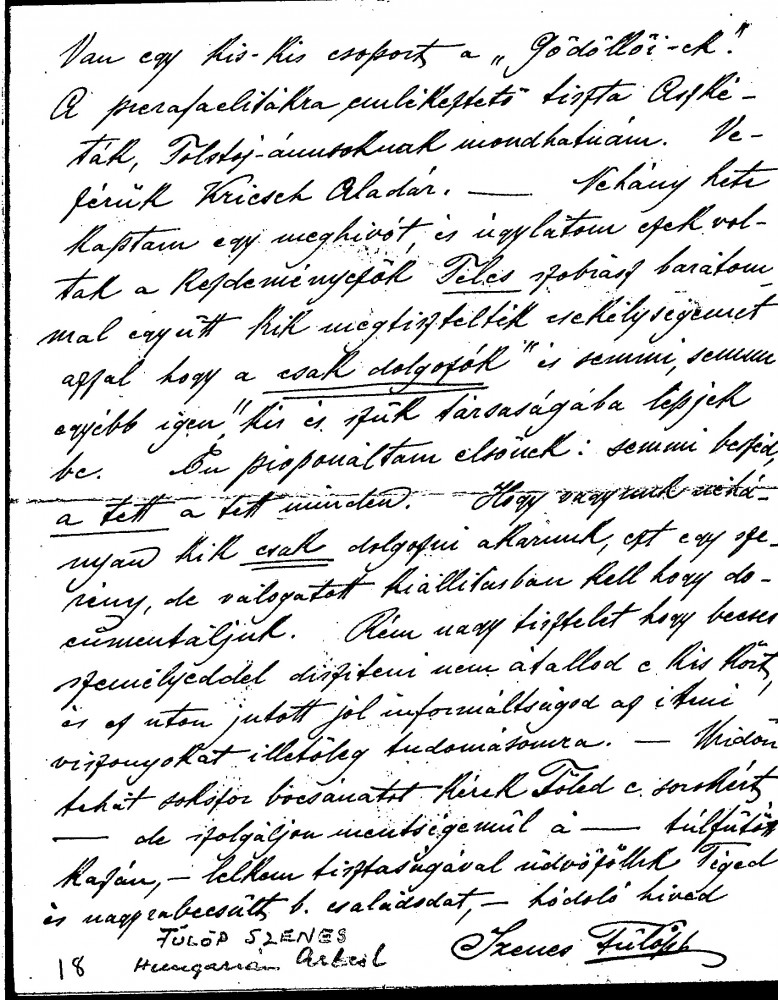 Van egy kis-kis csoport, a „Gödöllői-ek."
A prerafaelitákra emlékeztető tiszta Aszké-
ták, Tolstoj-ánusoknak mondhatnám. Ve-
zérük Kriesch Aladár. — Nehány hete
kaptam egy meghivót, és úgylátom ezek vol-
tak a kezdeményezők Telcs szobrász barátom-
mal együtt kik megtisztelték csekélységemet
azzal hogy a csak dolgozók" és semmi, semmi
egyébb igen „kis és szűk társaságába lépjek
be. Én proponáltam elsőnek: semmi beszéd,
a tett a tett minden. Hogy vagyunk nehá-
nyan kik csak dolgozni akarunk, ezt egy sze-
rény, de válogatott kiállitásban kell hogy do-
cumentáljuk. Rém nagy tisztelet hogy becses
személyeddel disziteni nem átallod e kis kört,
és ez uton jutott jól informáltságod az itteni
viszonyokat illetőleg tudomásomra. — Midőn
tehát sokszor bocsánatot kérek Tőled e sorokért,
— de szolgáljon mentségemül a — túlfűtött
kazán, — lelkem tisztaságával üdvözöllek Téged
és nagyrabecsült b. családodat, — hódoló hived
Szenes Fülöp
FÜLÖP SZENES
18 Hungarian Artist